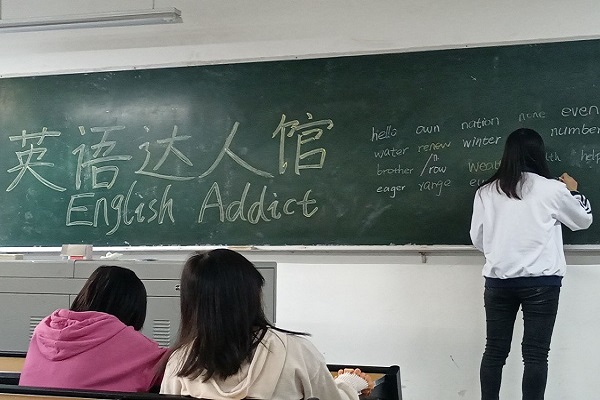 英语达人馆
English Addict
hello own nation none even
water renew winter number
brother row help
eager range